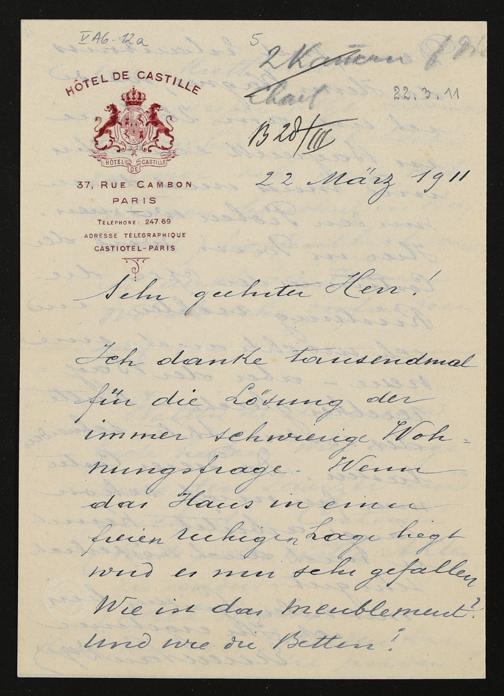 VA6-12a
5
2 Kam
22.3.11
HÔTEL DE CASTILLE
HÔTEL DE CASTILLE
B 28/III
37, RUE CAMBON
PARIS
22 März 1911
TELEPHONE: 247.69
ADRESSE TÉLÉGRAPHIQUE
CASTIOTEL-PARIS
Sehr geehrter Herr!
Ich danke tausendmal
für die Lösung der
immer schwierige Woh=
nungsfrage. Wenn
das Haus in einer
freien ruhigen Lage liegt
wird es mir sehr gefallen
Wie ist das Meublement?
Und wie die Betten!